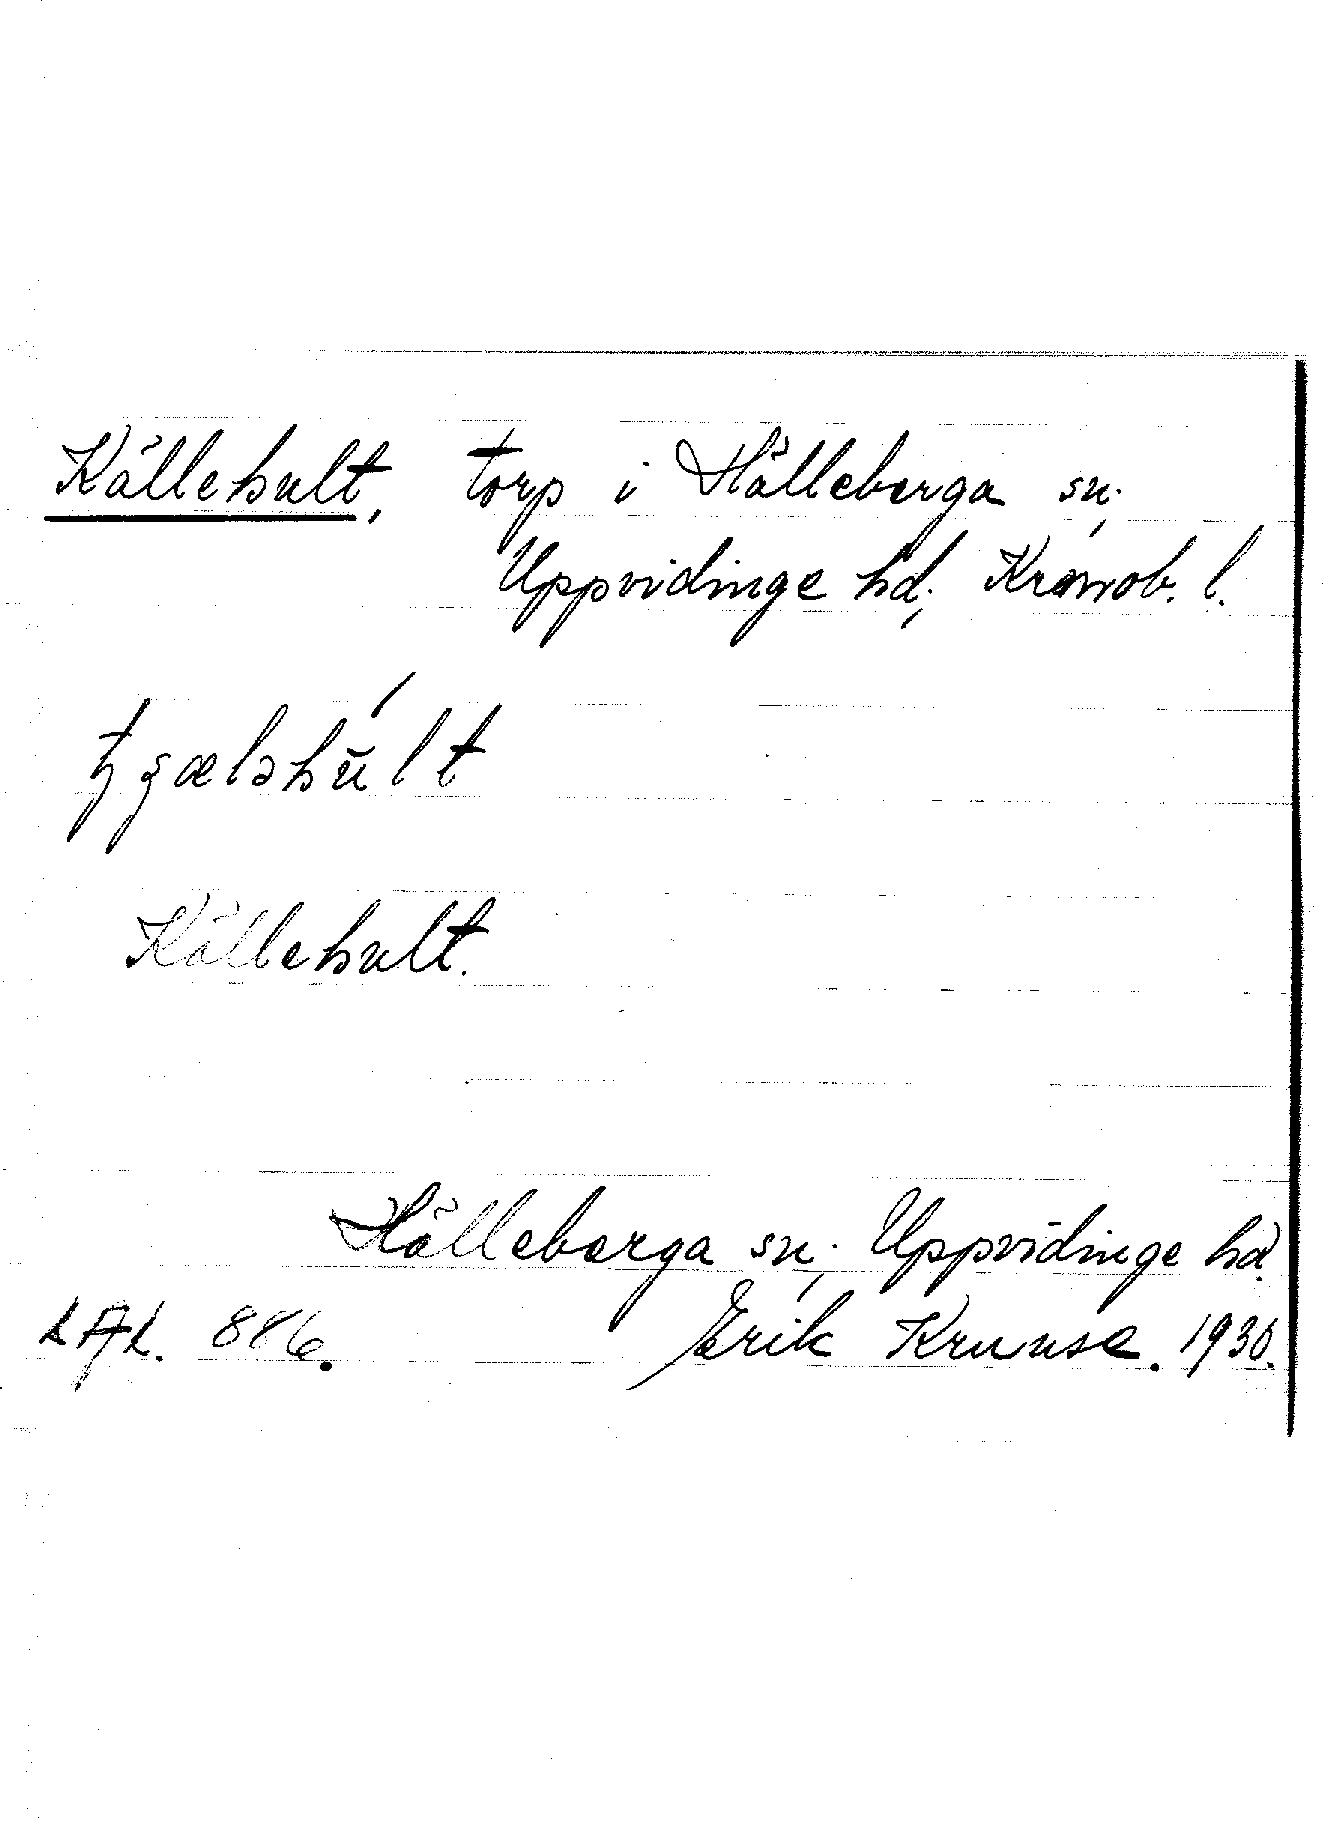 Källehult, torp i Hälleberga sn.,
Uppvidinge hd., Kronob. l.
Källehult.
Hälleberga sn., Uppvidinge hd.
886. Erik Kruuse. 1930.